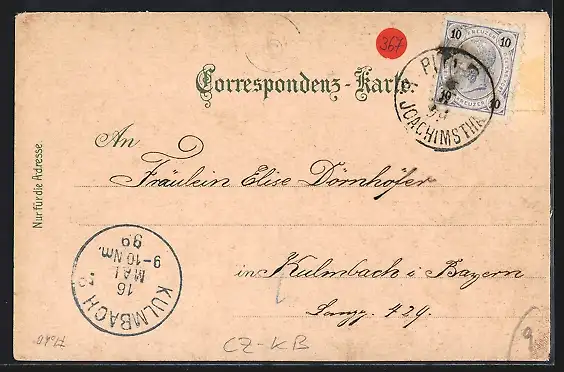 367
10 10
KREUZER
10 10
Correspondenz-Karte.
JOACHIMSTHAL
99
An
Fräulein Elise Dörnhöfer
Nur für die Adresse
KULMBACH
16
MAI
9-10 Nm.
99
in Kulmbach i. Bayern
Langg. 429.
CZ-KB